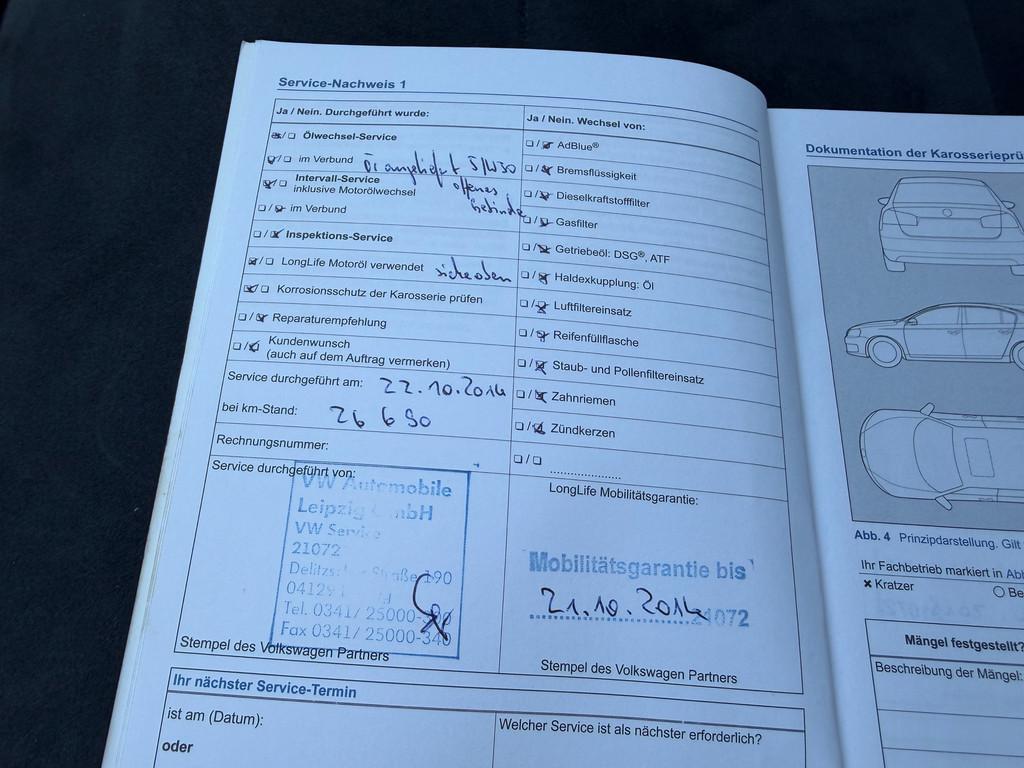 Service-Nachweis 1
Ja / Nein. Durchgeführt wurde:
Ölwechsel-Service
im Verbund Öl angeliefert 5/W30
offenes
Gebinde
Intervall-Service
inklusive Motorölwechsel
im Verbund
Inspektions-Service
LongLife Motoröl verwendet siehe oben
Korrosionsschutz der Karosserie prüfen
Reparaturempfehlung
Kundenwunsch
(auch auf dem Auftrag vermerken)
Service durchgeführt am: 22.10.2014
bei km-Stand: 26 690
Rechnungsnummer:
Service durchgeführt von:
VW Automobile
Leipzig GmbH
VW Service
21072
Straße 190
Tel. 0341/ 25000-
Fax 0341/ 25000-340
Stempel des Volkswagen Partners
Ja / Nein. Wechsel von:
AdBlue®
Bremsflüssigkeit
Dieselkraftstofffilter
Gasfilter
Getriebeöl: DSG®, ATF
Haldexkupplung: Öl
Luftfiltereinsatz
Reifenfüllflasche
Staub- und Pollenfiltereinsatz
Zahnriemen
Zündkerzen
LongLife Mobilitätsgarantie:
Mobilitätsgarantie bis
21.10.2016
21072
Stempel des Volkswagen Partners
Ihr nächster Service-Termin
ist am (Datum):
oder
Welcher Service ist als nächster erforderlich?
Dokumentation der Karosserieprü
Abb. 4 Prinzipdarstellung. Gilt
Ihr Fachbetrieb markiert in Abb
× Kratzer
Be
Mängel festgestellt?
Beschreibung der Mängel: